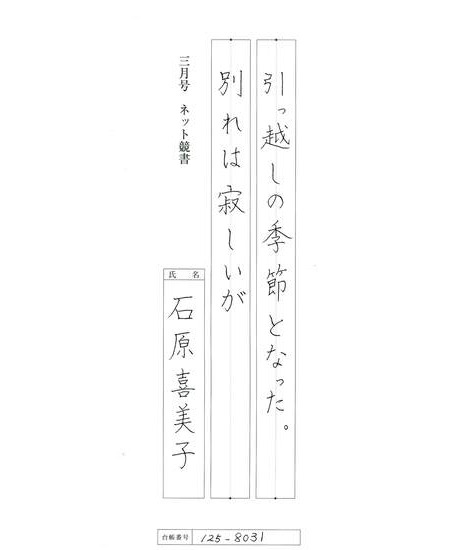 引っ越しの季節となった。
別れは寂しいが
三月号 ネット競書
氏名
石原喜美子
台帳番号 125-8031